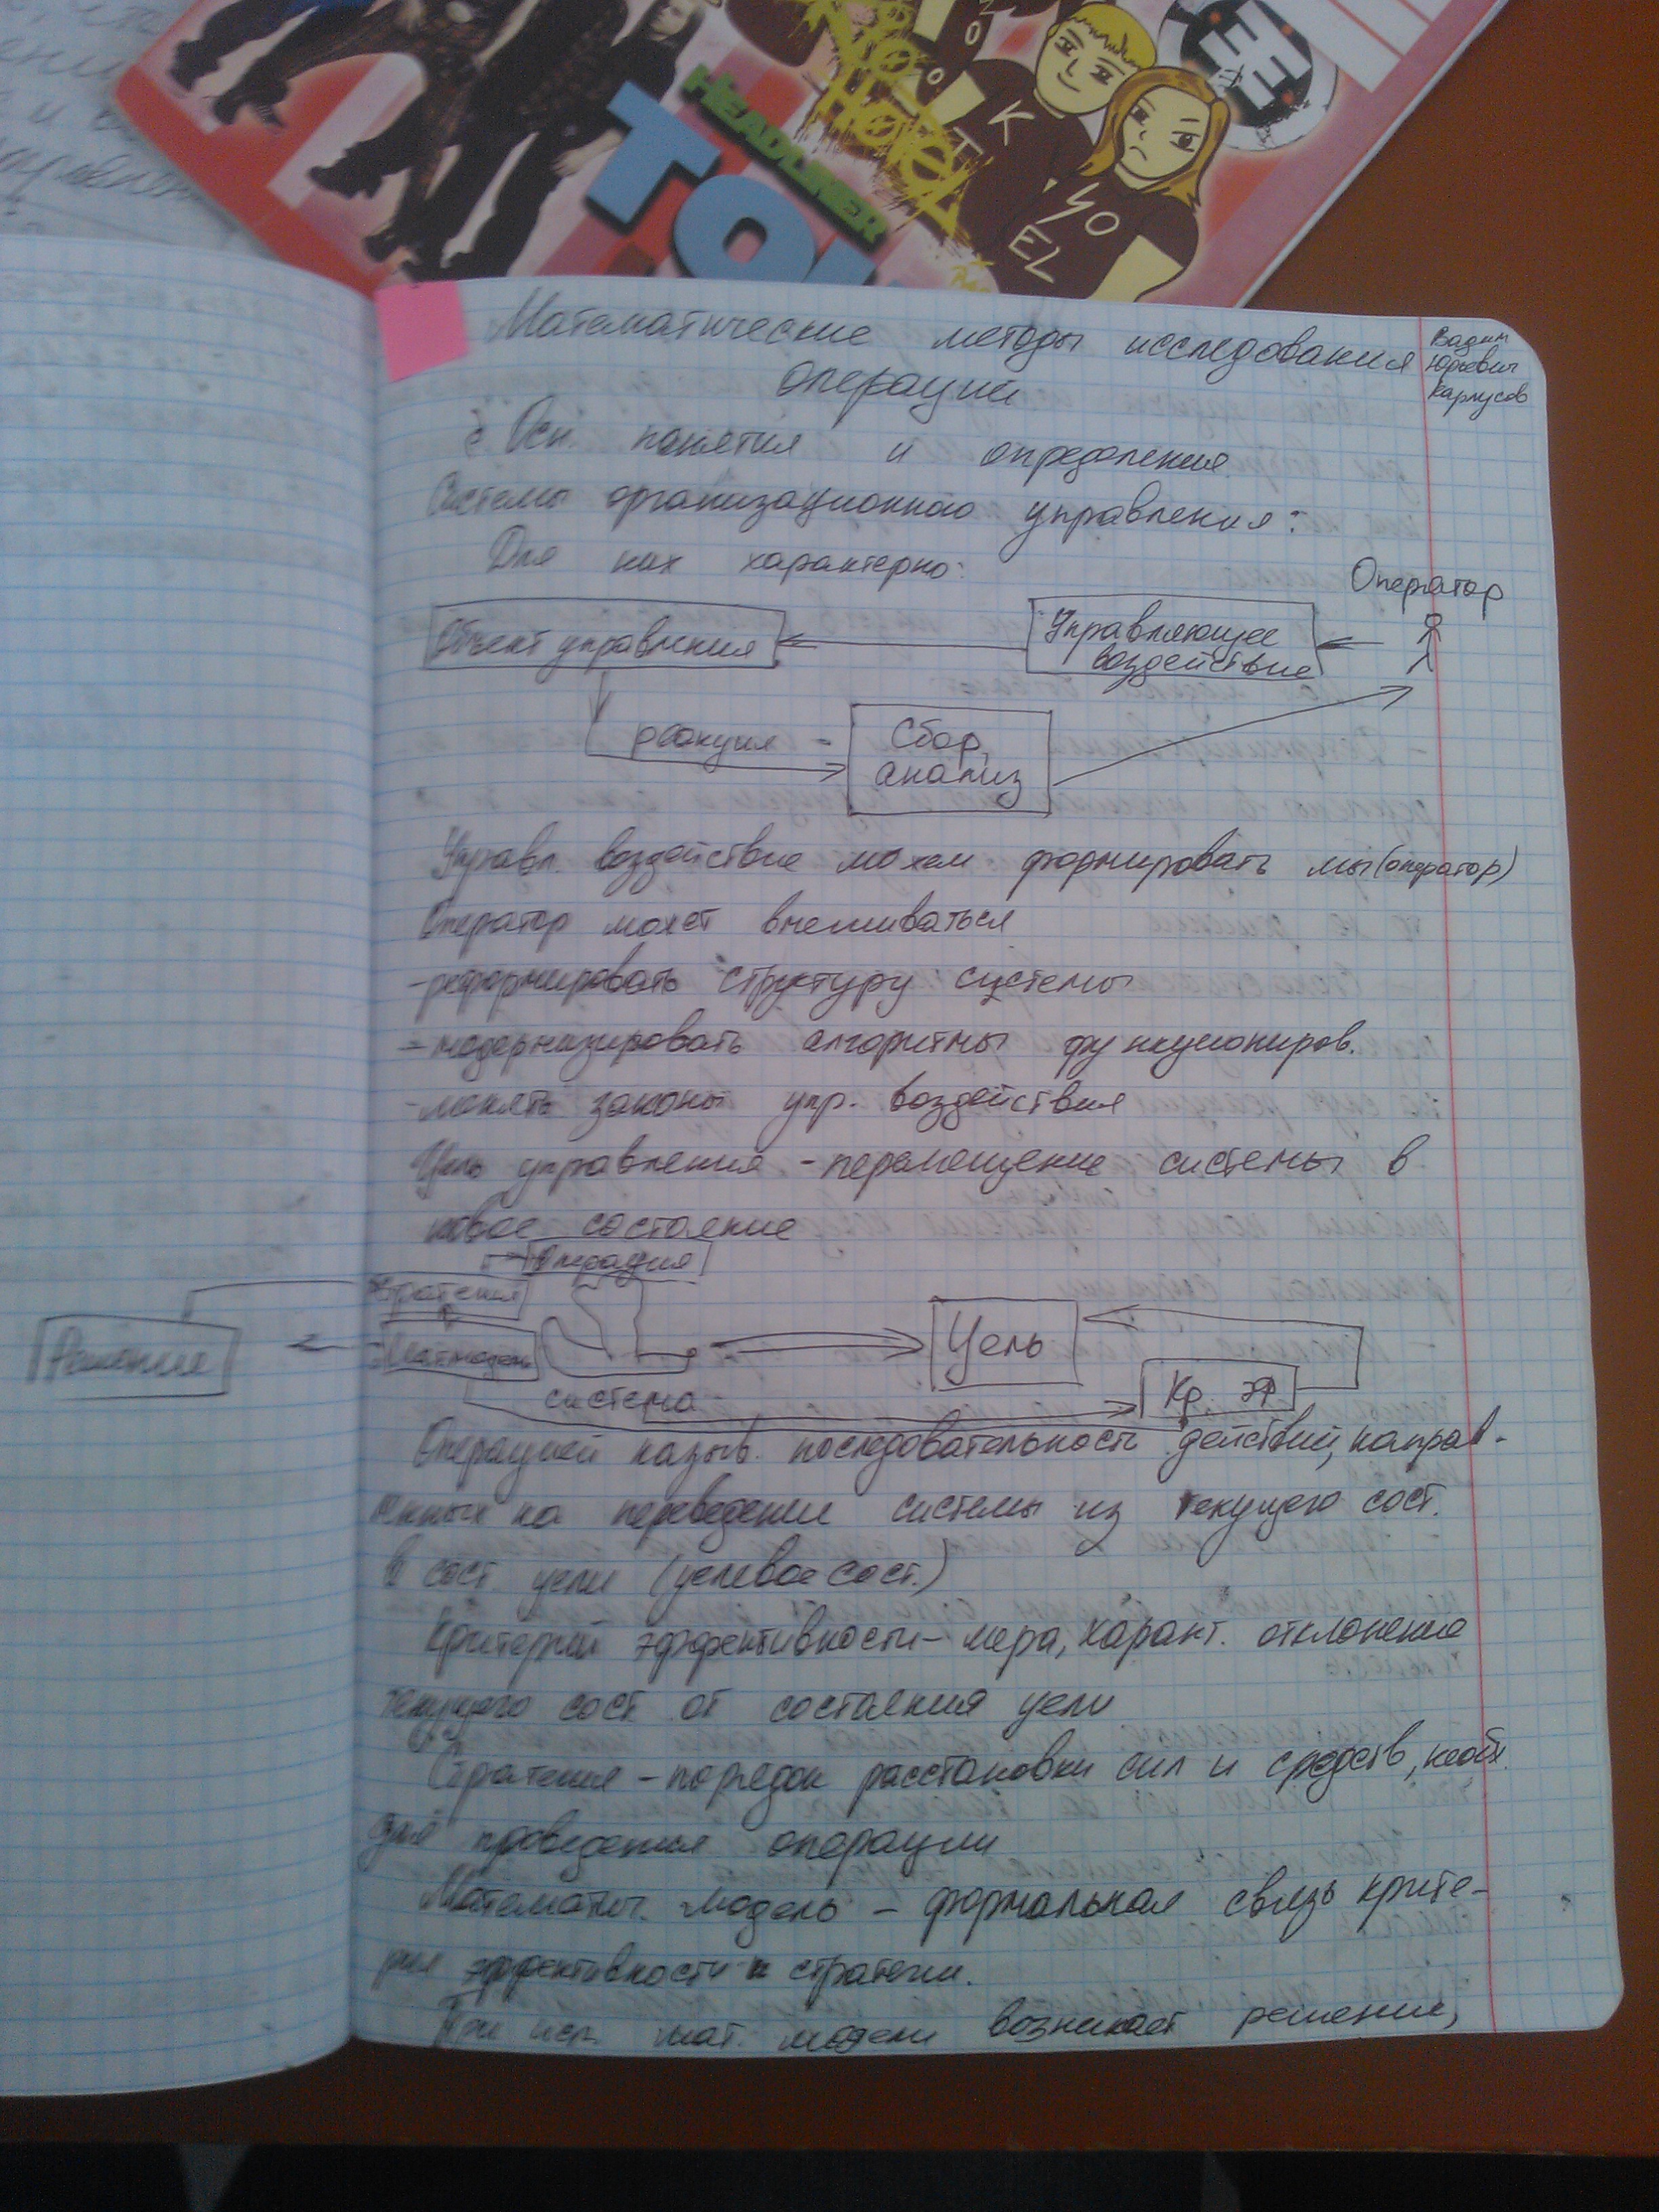 HEADLINER
TO
K
EL
Математические методы исследования
операций
Вадим
Юрьевич
Карпусов
Осн. понятия и определения
Системы организационного управления:
Для них характерно:
Оператор
Объект управления
Управляющее
воздействие
реакция
Сбор,
анализ
Управл. воздействие можем формировать мы (оператор)
Оператор может вмешиваться
- реформировать структуру системы
- модернизировать алгоритмы функциониров.
- менять законы упр. воздействия
Цель управления - перемещение системы в
новое состояние
Операция
Стратегия
Решение
Мат.модель
Цель
система
Кр. эф
Операцией назыв. последовательность действий, направ-
ленных на переведение системы из текущего сост.
в сост. цели (целевое сост.)
Критерий эффективности - мера, характ. отклонение
текущего сост. от состояния цели
Стратегия - порядок расстановки сил и средств, необх.
для проведения операции
Математич. модель - формальная связь крите-
рия эффективности и стратегии.
При исп. мат. модели возникает решение,